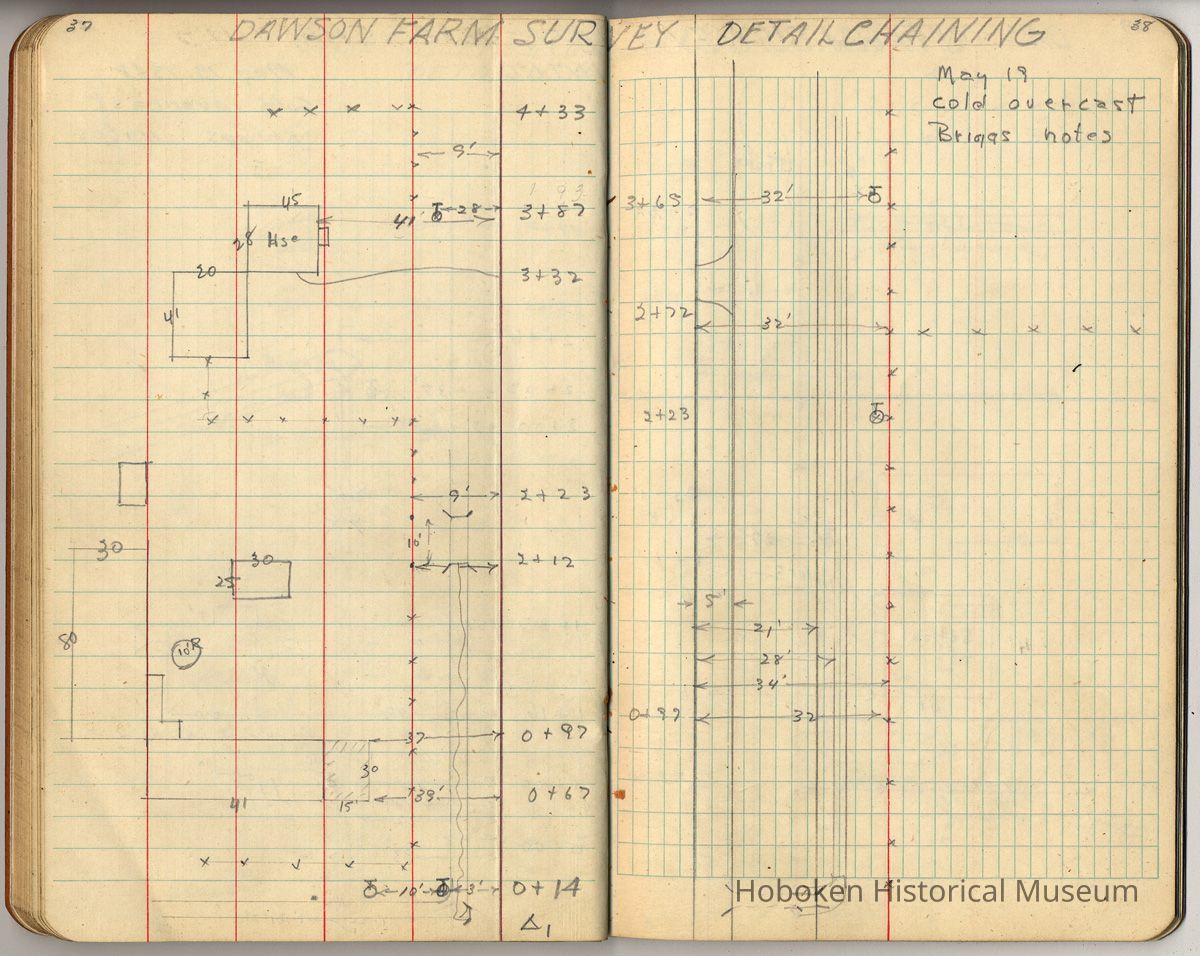 37
DAWSON FARM SURVEY DETAIL CHAINING
38
May 19
cold overcast
Briggs notes
4+33
9'
45
41'
28
3+87
28
Hse
20
3+32
41
9'
2+23
10'
2+12
30
30
25
80
10'R
37
0+97
30
41
15
39'
0+67
10'
3'
0+14
Δ1
3+65
32'
2+72
32'
2+23
5'
21'
28'
34'
0+97
32
Hoboken Historical Museum